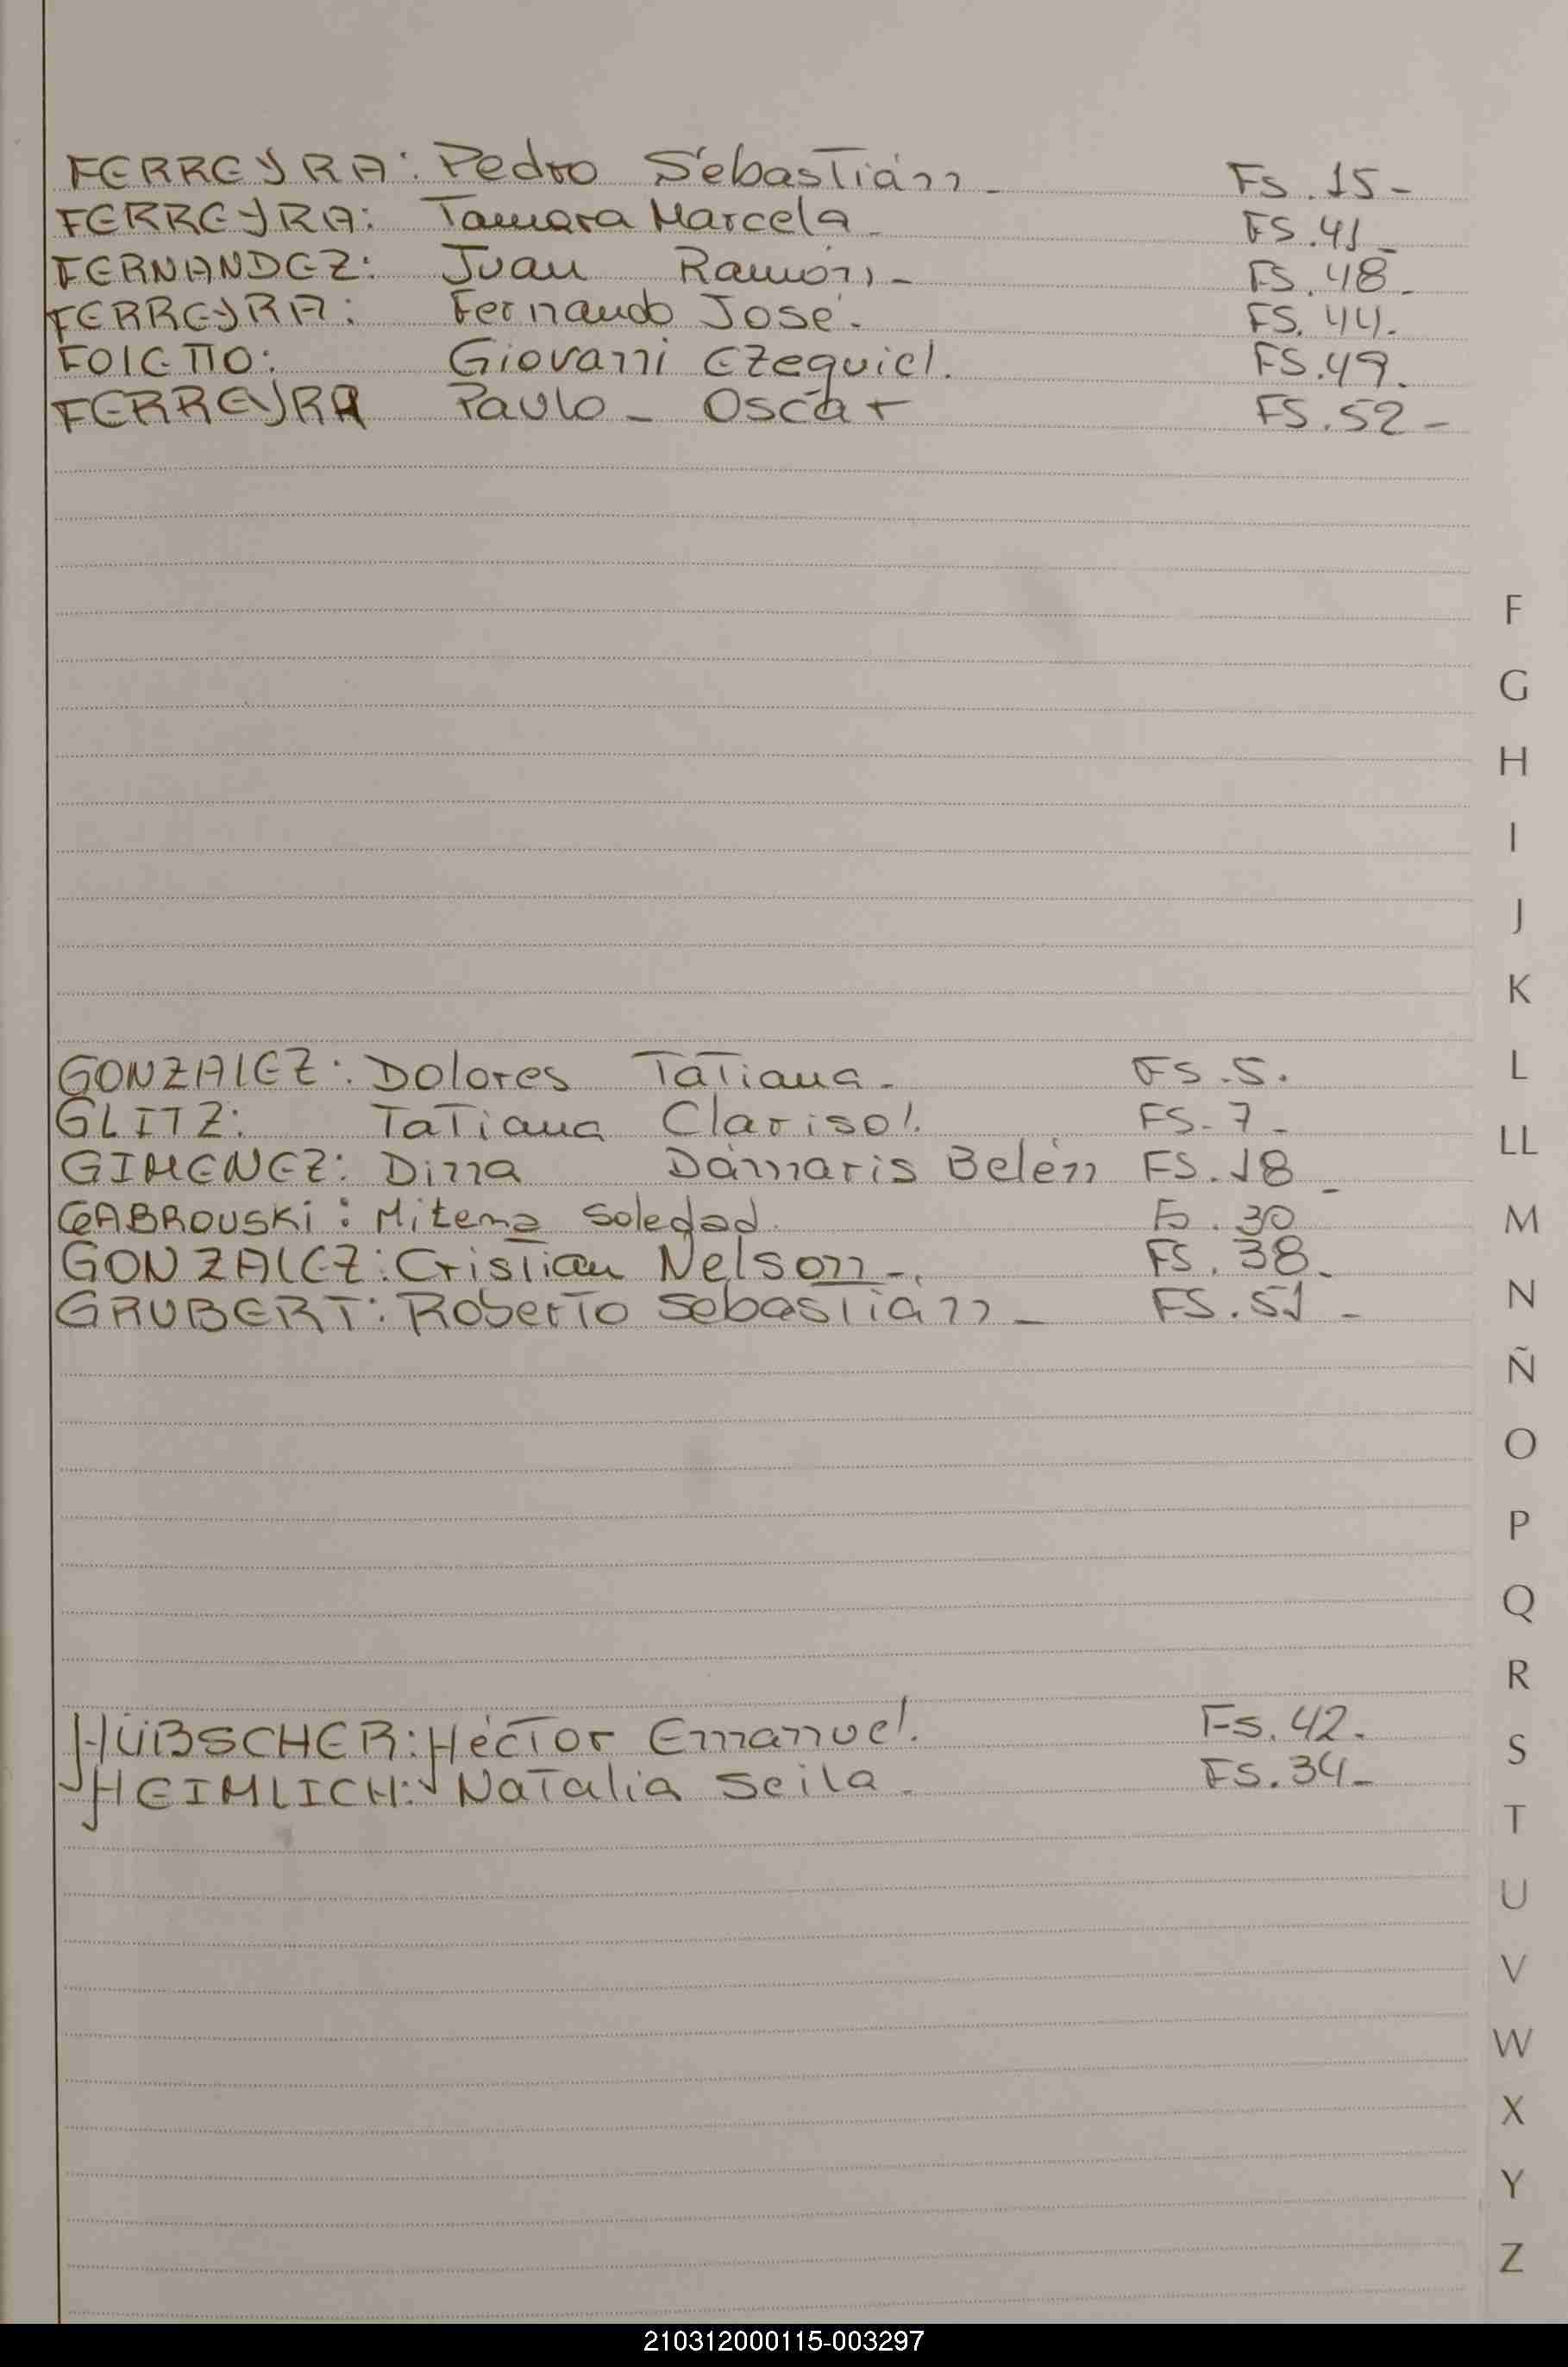 FERREYRA: Pedro Sebastián - Fs. 15 -
FERREYRA: Tamara Marcela - FS. 41 -
FERNANDEZ: Juan Ramón - FS. 48 -
FERREYRA: Fernando José. FS. 44.
FOLETTO: Giovanni Ezequiel. FS. 49.
FERREYRA Paulo - Oscar FS. 52 -
F
G
H
I
J
K
GONZALEZ: Dolores Tatiana - FS. 5.
L
GLITZ: Tatiana Clarisol. FS - 7 -
LL
GIMENEZ: Dina Dámaris Belén FS. 18 -
GABROUSKI: Milena Soledad. Fs. 30
M
GONZALEZ: Cristian Nelson - . FS. 38 -
GRUBERT: Roberto Sebastián - FS. 51 -
N
Ñ
O
P
Q
R
HÜBSCHER: Héctor Emanuel. Fs. 42.
S
HEIMLICH: Natalia Seila - Fs. 34 -
T
U
V
W
X
Y
Z
210312000115-003297